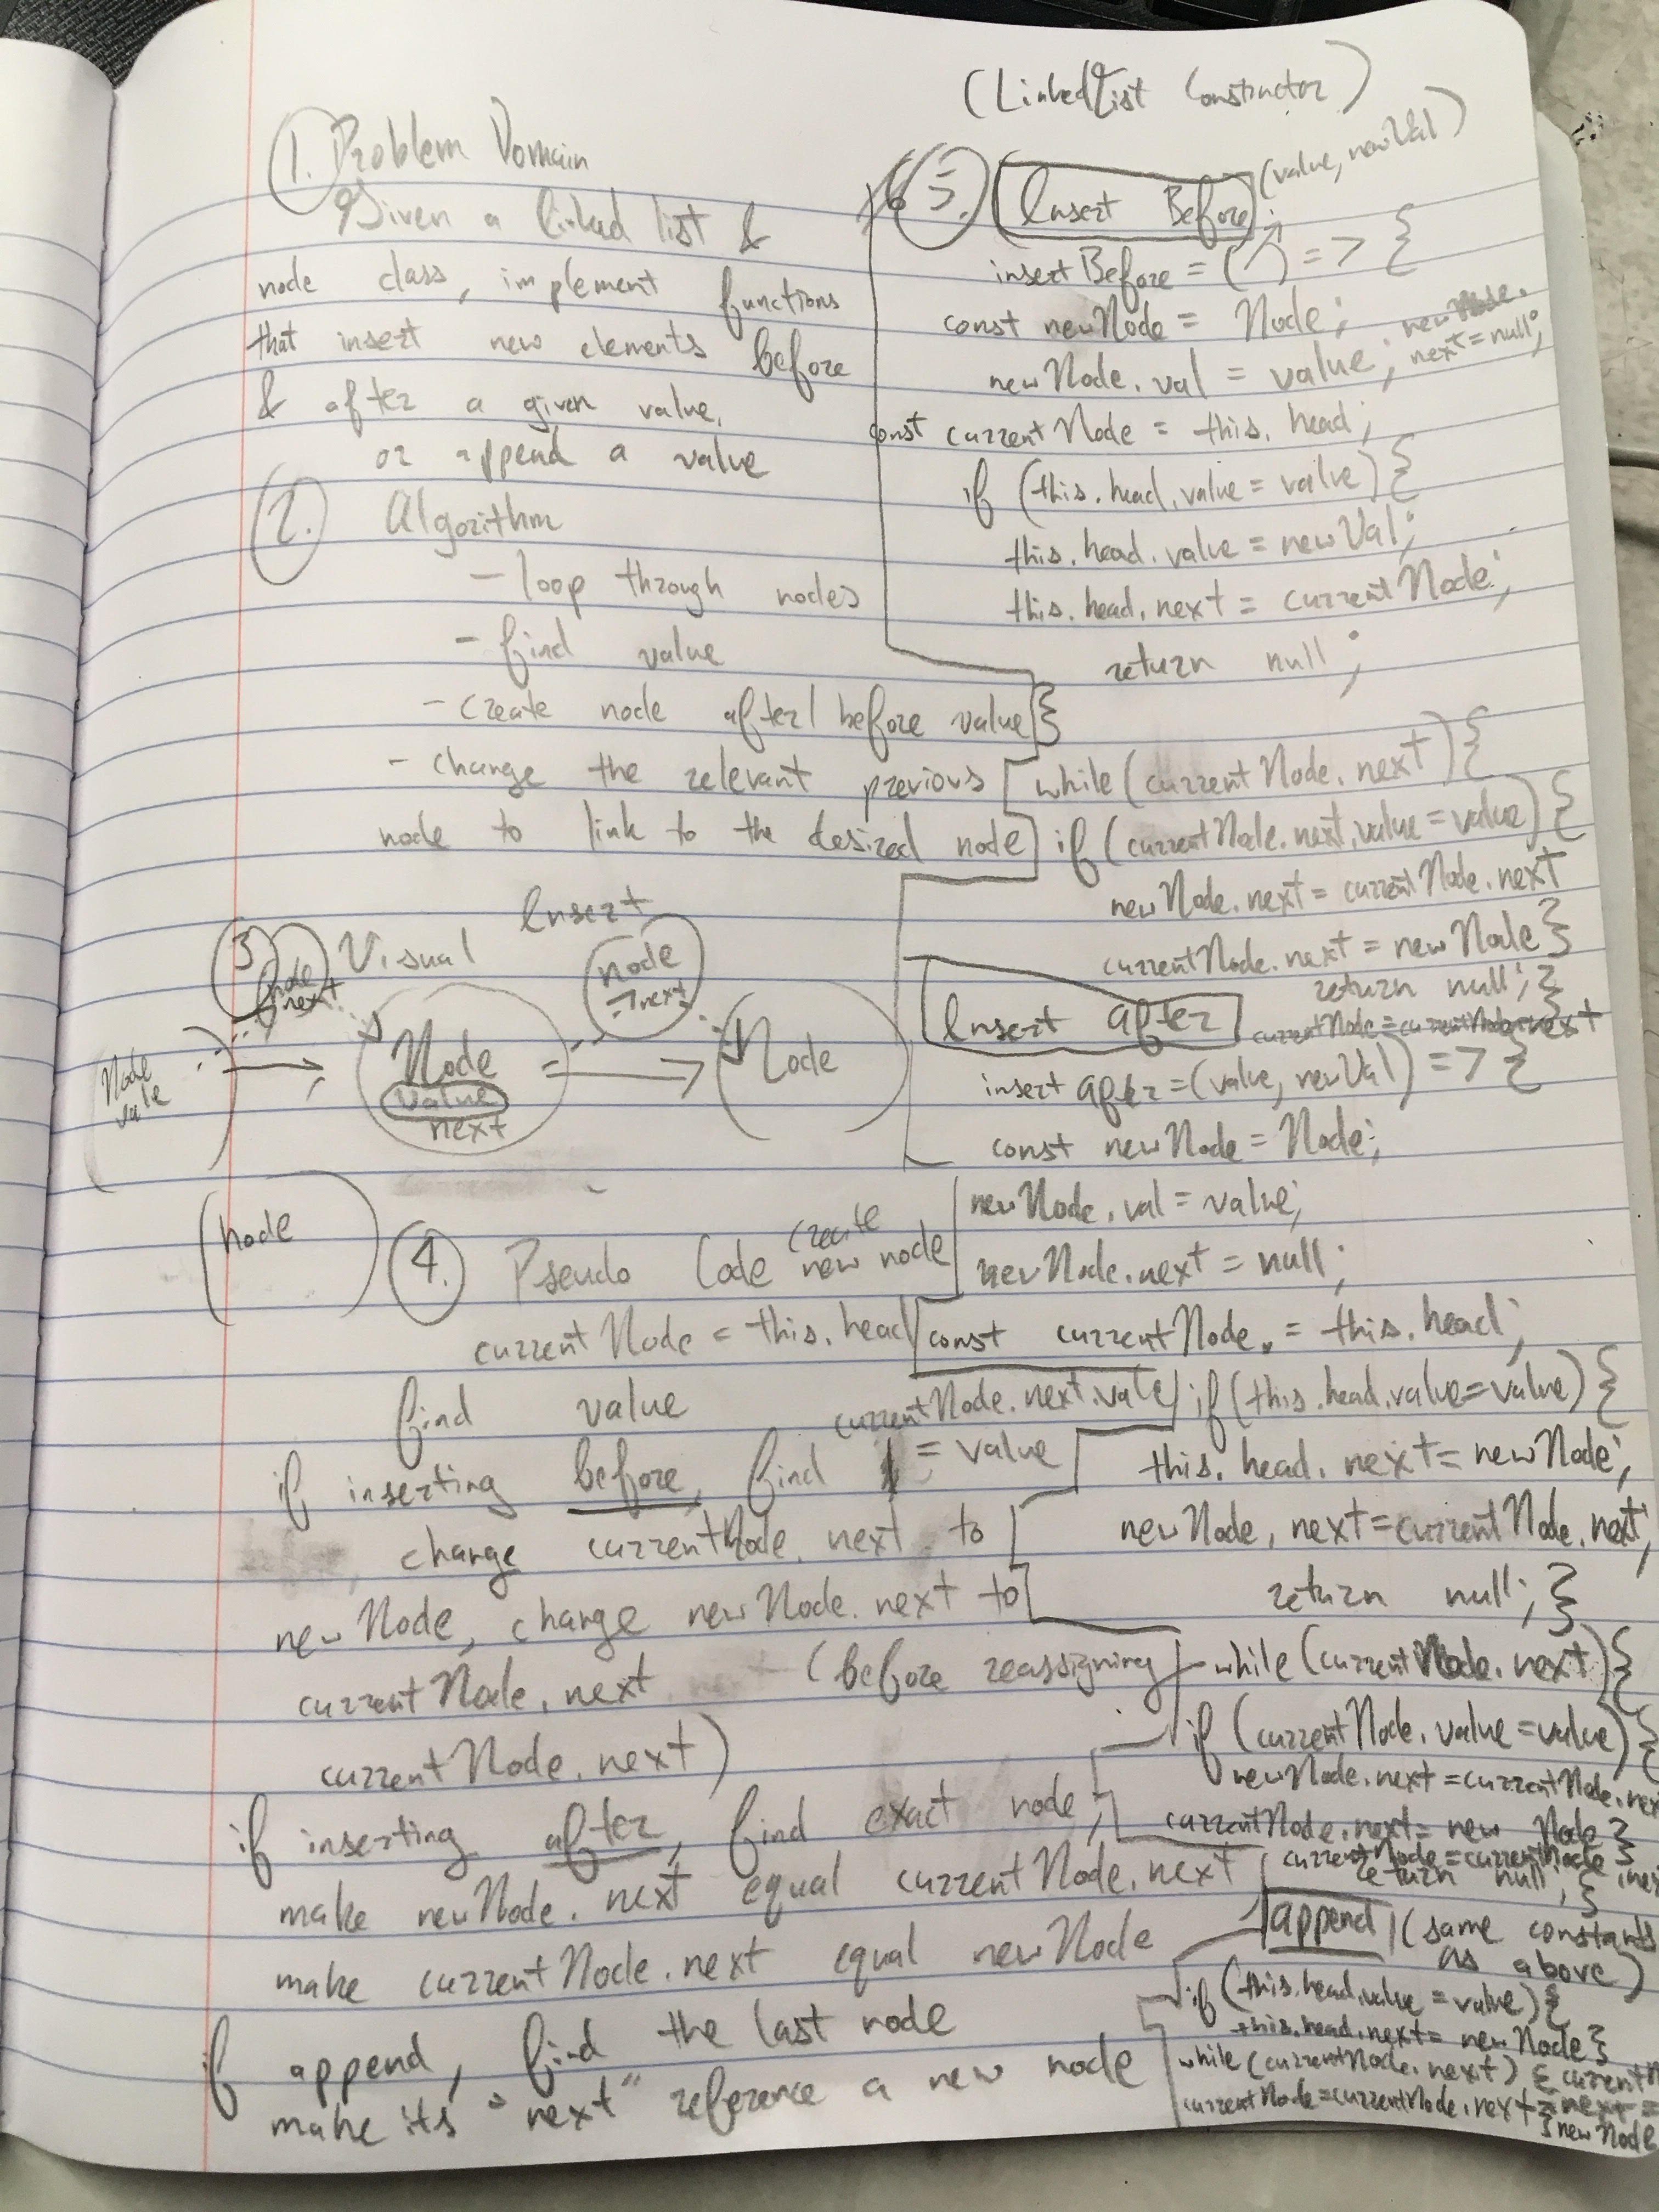 1. Problem Domain
Given a linked list &
node class, implement functions
that insert new elements before
& after a given value,
or append a value
2. Algorithm
- loop through nodes
- find value
- create node after/before value
- change the relevant previous
node to link to the desired node
3 Visual
Insert
node
next
node
→next
Node
value
Node
value
next
Node
node
4. Pseudo Code
create
new node
currentNode = this.head
find value
currentNode.next.value
if inserting before, find = value
change currentNode.next to
newNode, change newNode.next to
currentNode.next (before reassigning
currentNode.next)
if inserting after, find exact node,
make newNode.next equal currentNode.next
make currentNode.next equal newNode
if append, find the last node
make its "next" reference a new node
(LinkedList Constructor)
5. Insert Before (value, newVal)
insertBefore = ( ) => {
const newNode = Node;
newNode.val = value; newNode.
next = null;
const currentNode = this.head;
if (this.head.value = value) {
this.head.value = newVal;
this.head.next = currentNode;
return null;
}
while (currentNode.next) {
if (currentNode.next.value = value) {
newNode.next = currentNode.next
currentNode.next = newNode }
return null; }
currentNode = currentNode.next
Insert after
insert after = (value, newVal) => {
const newNode = Node;
newNode.val = value;
newNode.next = null;
const currentNode = this.head;
if (this.head.value = value) {
this.head.next = newNode;
newNode.next = currentNode.next;
return null; }
while (currentNode.next) {
if (currentNode.value = value) {
newNode.next = currentNode.nex
currentNode.next = new Node }
currentNode = currentNode
return null; }
append (same constants
as above)
if (this.head.value = value) {
this.head.next = newNode }
while (currentNode.next) { currentN
currentNode = currentNode.next
} newNode